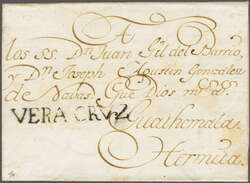 A
los SS. Dn. Juan Gil del Barrio,
y Dn. Joseph Agustin Gonzalez
de Navas Que Dios m. a.
VERA CRUZ
Guathemala